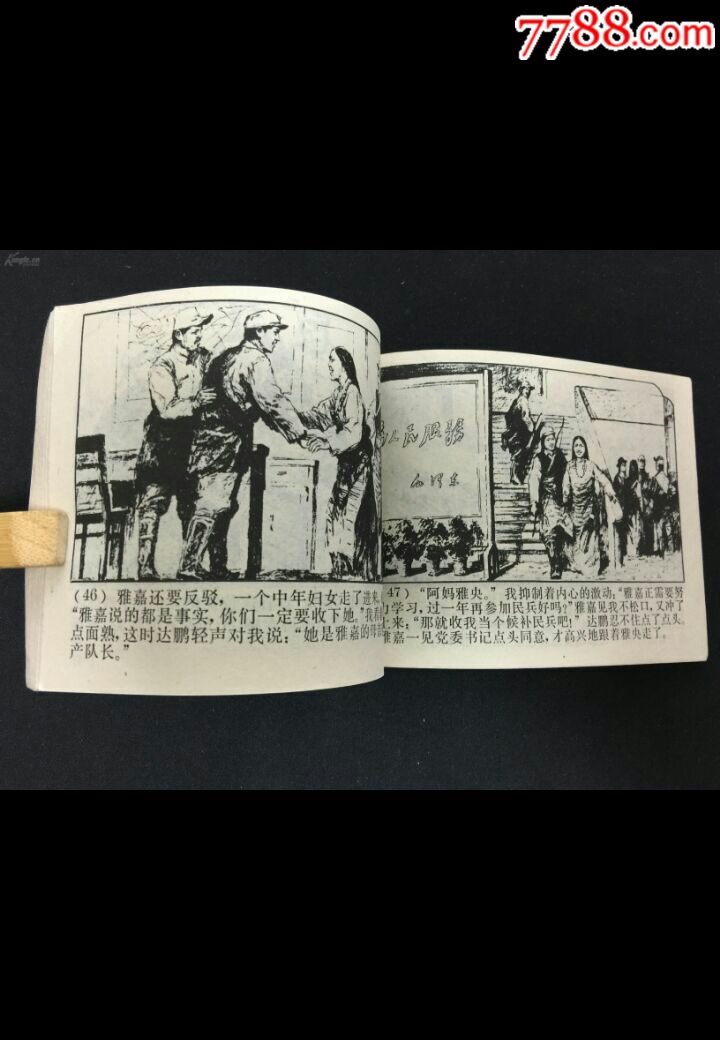 7788.com
Kongfz.cn
人民服務
毛泽东
(46) 雅嘉还要反驳，一个中年妇女走了进来，
“雅嘉说的都是事实，你们一定要收下她。”我看
点面熟，这时达鹏轻声对我说：“她是雅嘉的母
产队长。”
47) “阿妈雅央。”我抑制着内心的激动：“雅嘉正需要努
力学习，过一年再参加民兵好吗？”雅嘉见我不松口，又冲了
上来：“那就收我当个候补民兵吧！”达鹏忍不住点了点头。
雅嘉一见党委书记点头同意，才高兴地跟着雅央走了。